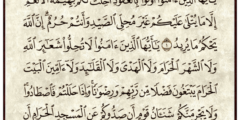 يَٰٓأَيُّهَا ٱلَّذِينَ ءَامَنُوٓا۟ أَوْفُوا۟ بِٱلْعُقُودِ أُحِلَّتْ لَكُم بَهِيمَةُ ٱلْأَنْعَٰمِ
إِلَّا مَا يُتْلَىٰ عَلَيْكُمْ غَيْرَ مُحِلِّى ٱلصَّيْدِ وَأَنتُمْ حُرُمٌ إِنَّ ٱللَّهَ
يَحْكُمُ مَا يُرِيدُ ۝١ يَٰٓأَيُّهَا ٱلَّذِينَ ءَامَنُوا۟ لَا تُحِلُّوا۟ شَعَٰٓئِرَ ٱللَّهِ
وَلَا ٱلشَّهْرَ ٱلْحَرَامَ وَلَا ٱلْهَدْىَ وَلَا ٱلْقَلَٰٓئِدَ وَلَآ ءَآمِّينَ ٱلْبَيْتَ
ٱلْحَرَامَ يَبْتَغُونَ فَضْلًا مِّن رَّبِّهِمْ وَرِضْوَٰنًا وَإِذَا حَلَلْتُمْ فَٱصْطَادُوا۟
وَلَا يَجْرِمَنَّكُمْ شَنَـَٔانُ قَوْمٍ أَن صَدُّوكُمْ عَنِ ٱلْمَسْجِدِ ٱلْحَرَامِ أَن